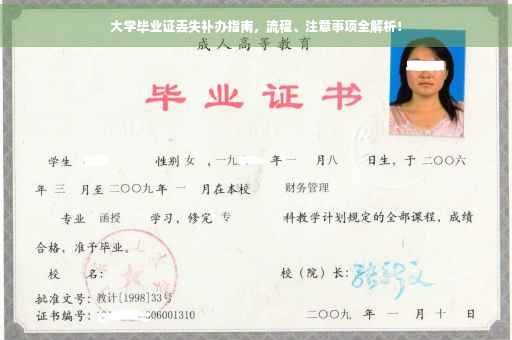 大学毕业证丢失补办指南，流程、注意事项全解析！
成人高等教育
毕业证书
学生 性别 女 ，一九 年 一 月 八 日生，于 二〇〇六
年 三 月至 二〇〇九 年 一 月在本校 财务管理
专业 函授 学习，修完 专 科教学计划规定的全部课程，成绩
合格，准予毕业。
校 名： 校（院）长：
批准文号：教计[1998]33号
证书编号： 006001310 二〇〇九 年 一 月 十 日